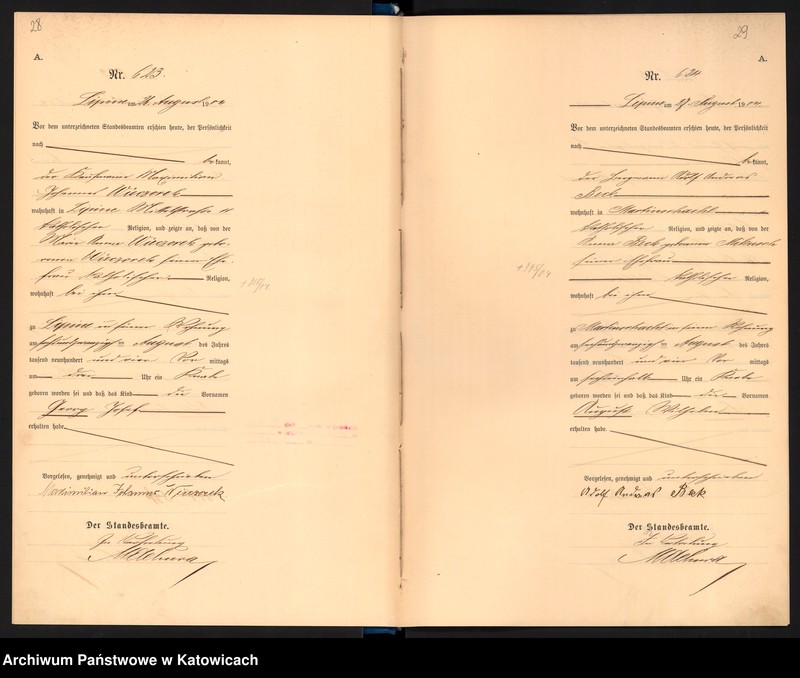 28
A.
Nr. 623.
Lipine am August 1904
Vor dem unterzeichneten Standesbeamten erschien heute, der Persönlichkeit
nach
bekannt,
der Kaufmann Maximilian
Johannes Wieczorek
wohnhaft in Lipine Mittelstrasse 11
katholischer Religion, und zeigte an, daß von der
Maria Anna Wieczorek gebo-
renen Wieczorek seiner Ehe-
frau katholischer Religion,
wohnhaft bei ihm
zu Lipine in seiner Wohnung
am August des Jahres
tausend neunhundert und vier Vor mittags
um drei Uhr ein Knabe
geboren worden sei und daß das Kind die Vornamen
Georg Josef
erhalten habe.
Vorgelesen, genehmigt und unterschrieben
Maximilian Johannes Wieczorek
Der Standesbeamte.
In Vertretung
29
A.
Nr. 624
Lipine am 27 August 1904
Vor dem unterzeichneten Standesbeamten erschien heute, der Persönlichkeit
nach
bekannt,
der Bergmann Adolf Andreas
Bek
wohnhaft in Martinschacht
katholischer Religion, und zeigte an, daß von der
Anna Bek geborenen
seiner Ehefrau
katholischer Religion,
wohnhaft bei ihm
zu Martinschacht in seiner Wohnung
am August des Jahres
tausend neunhundert und vier Vor mittags
um Uhr ein Knabe
geboren worden sei und daß das Kind die Vornamen
August Wilhelm
erhalten habe.
Vorgelesen, genehmigt und unterschrieben
Adolf Andreas Bek
Der Standesbeamte.
In Vertretung
Archiwum Państwowe w Katowicach